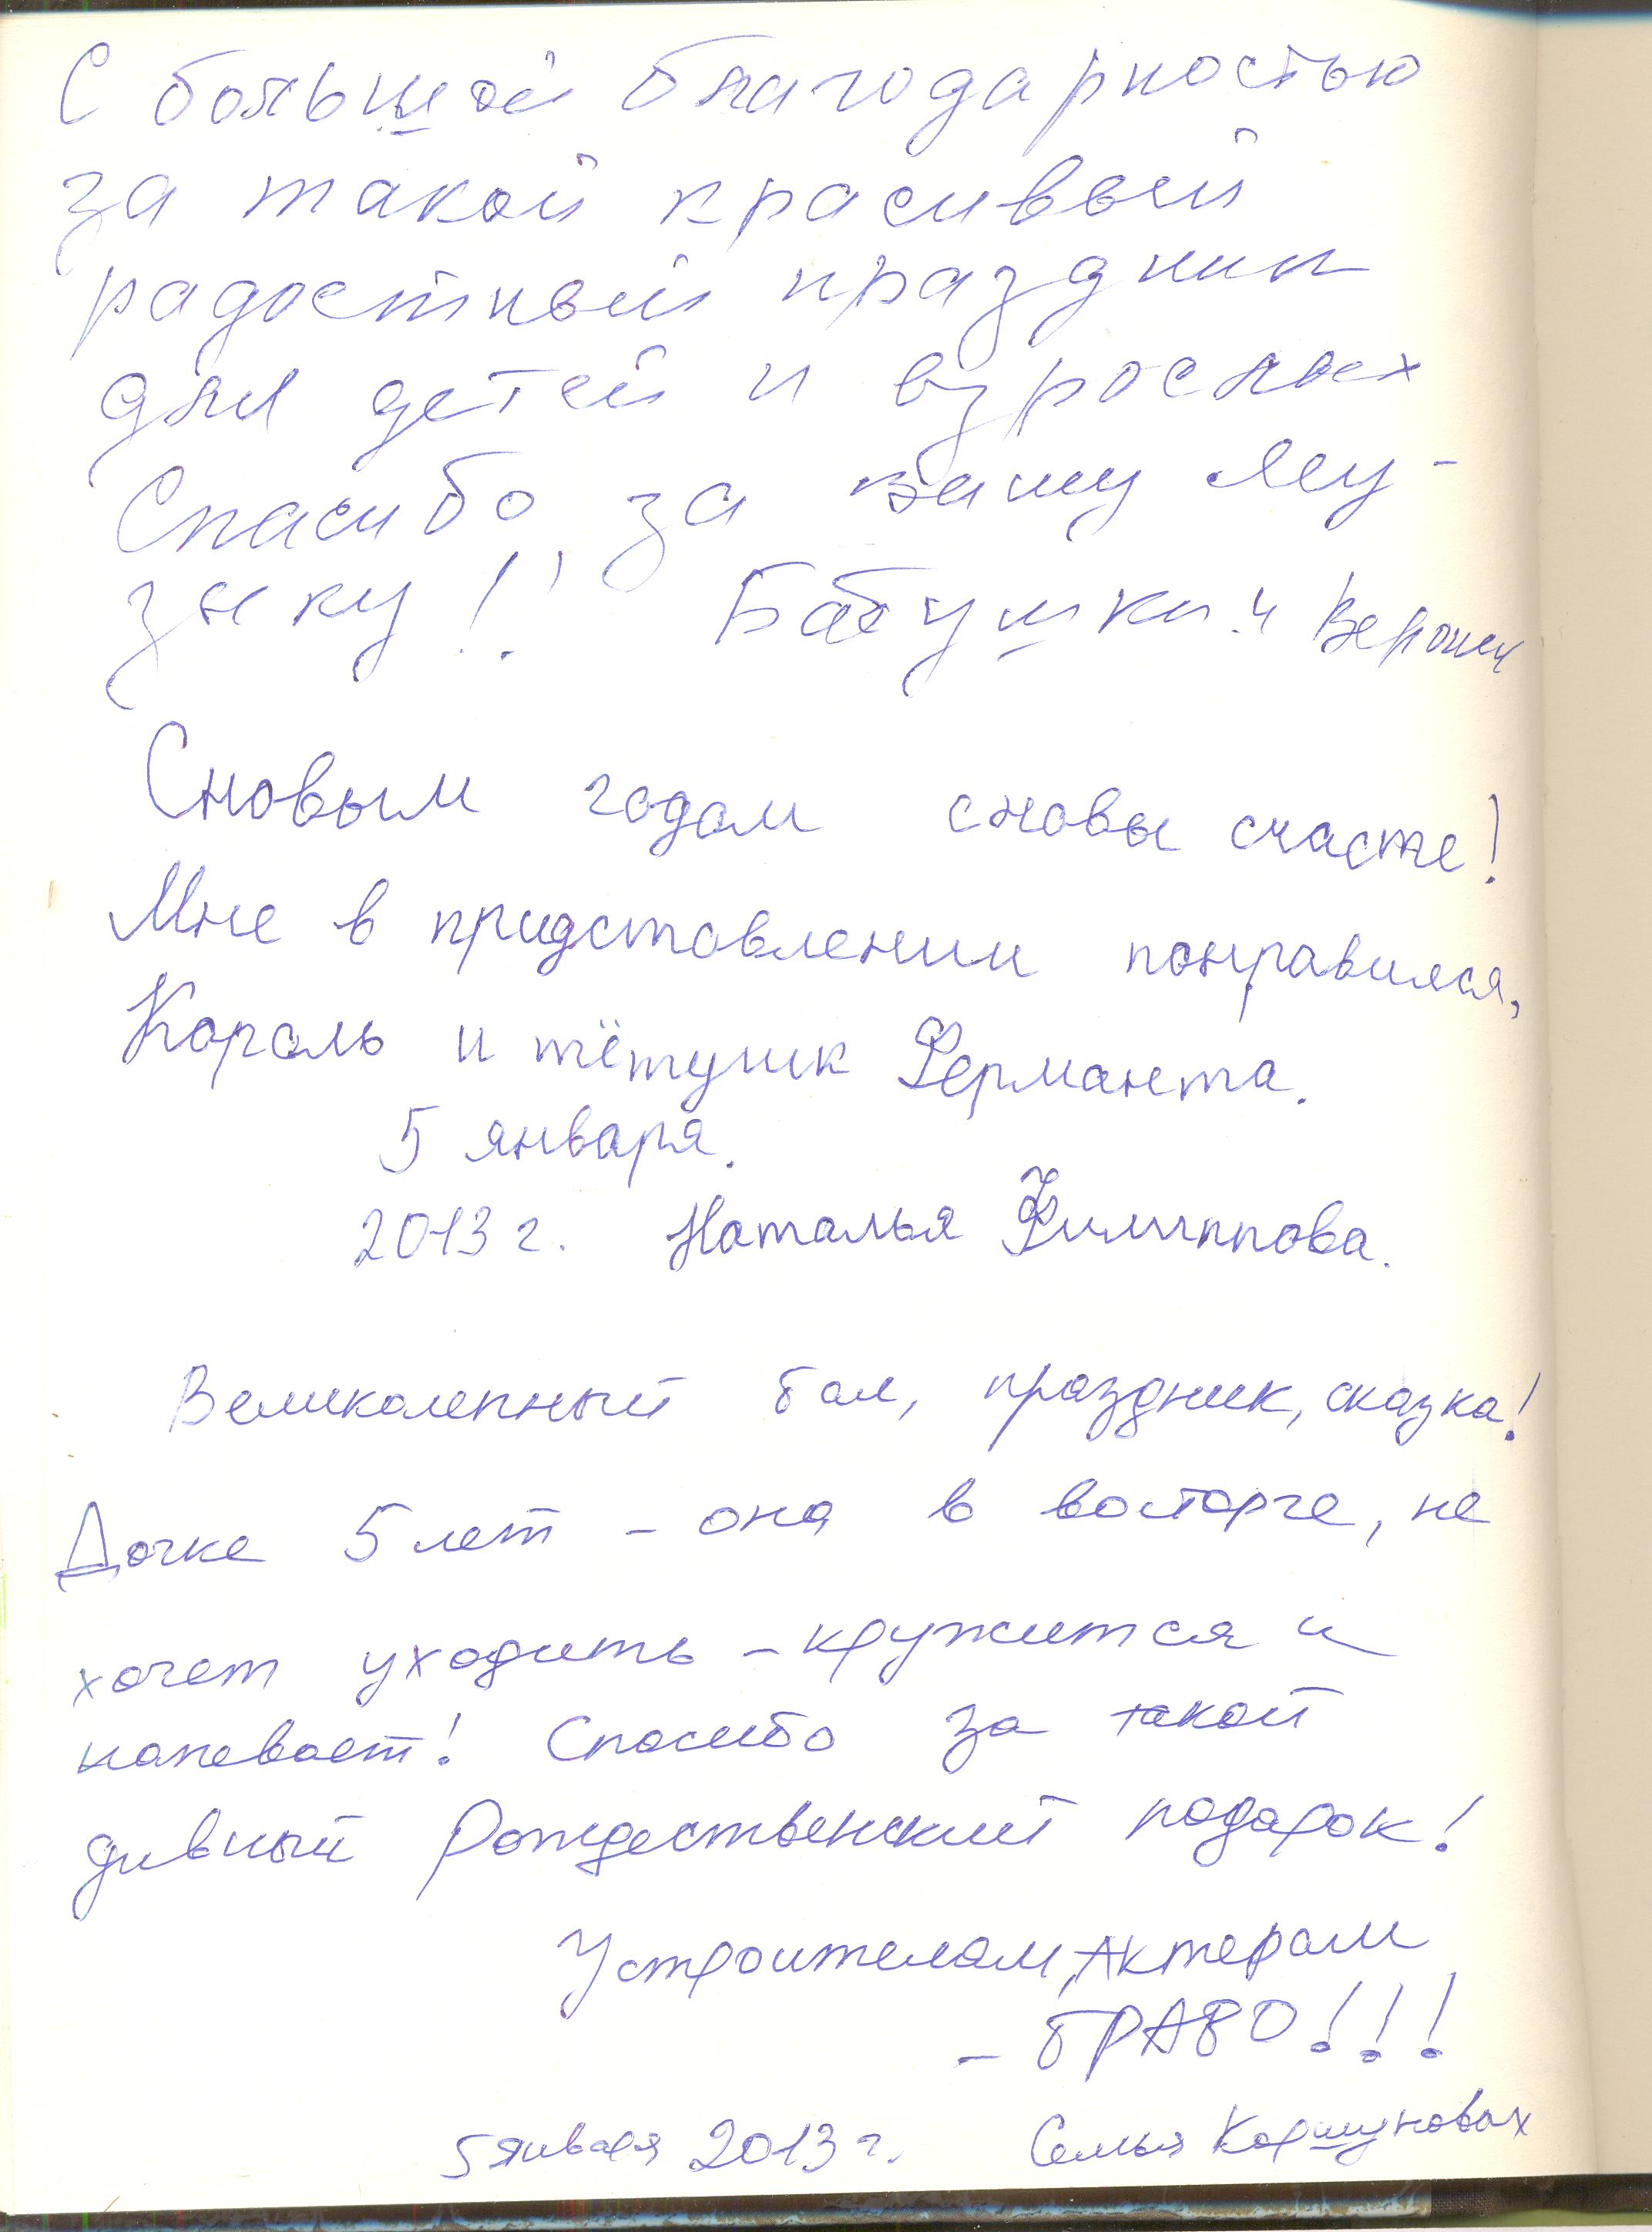 С большой благодарностью
за такой красивый
радостный праздник
для детей и взрослых
Спасибо за вашу му-
зыку!! Бабушки и
Сновым годом сновы счасте!
Мне в придставлении понравился,
Король и тётушк Ферманта.
5 января.
2013 г. Наталья Филиппова.
Великолепный бал, праздник, сказка!
Дочке 5 лет - она в восторге, не
хочет уходить - кружится и
напевает! Спасибо за такой
дивный Рождественский подарок!
Устроителям, Актерам
- БРАВО!!!
5 января 2013 г. Семья Коршуновых